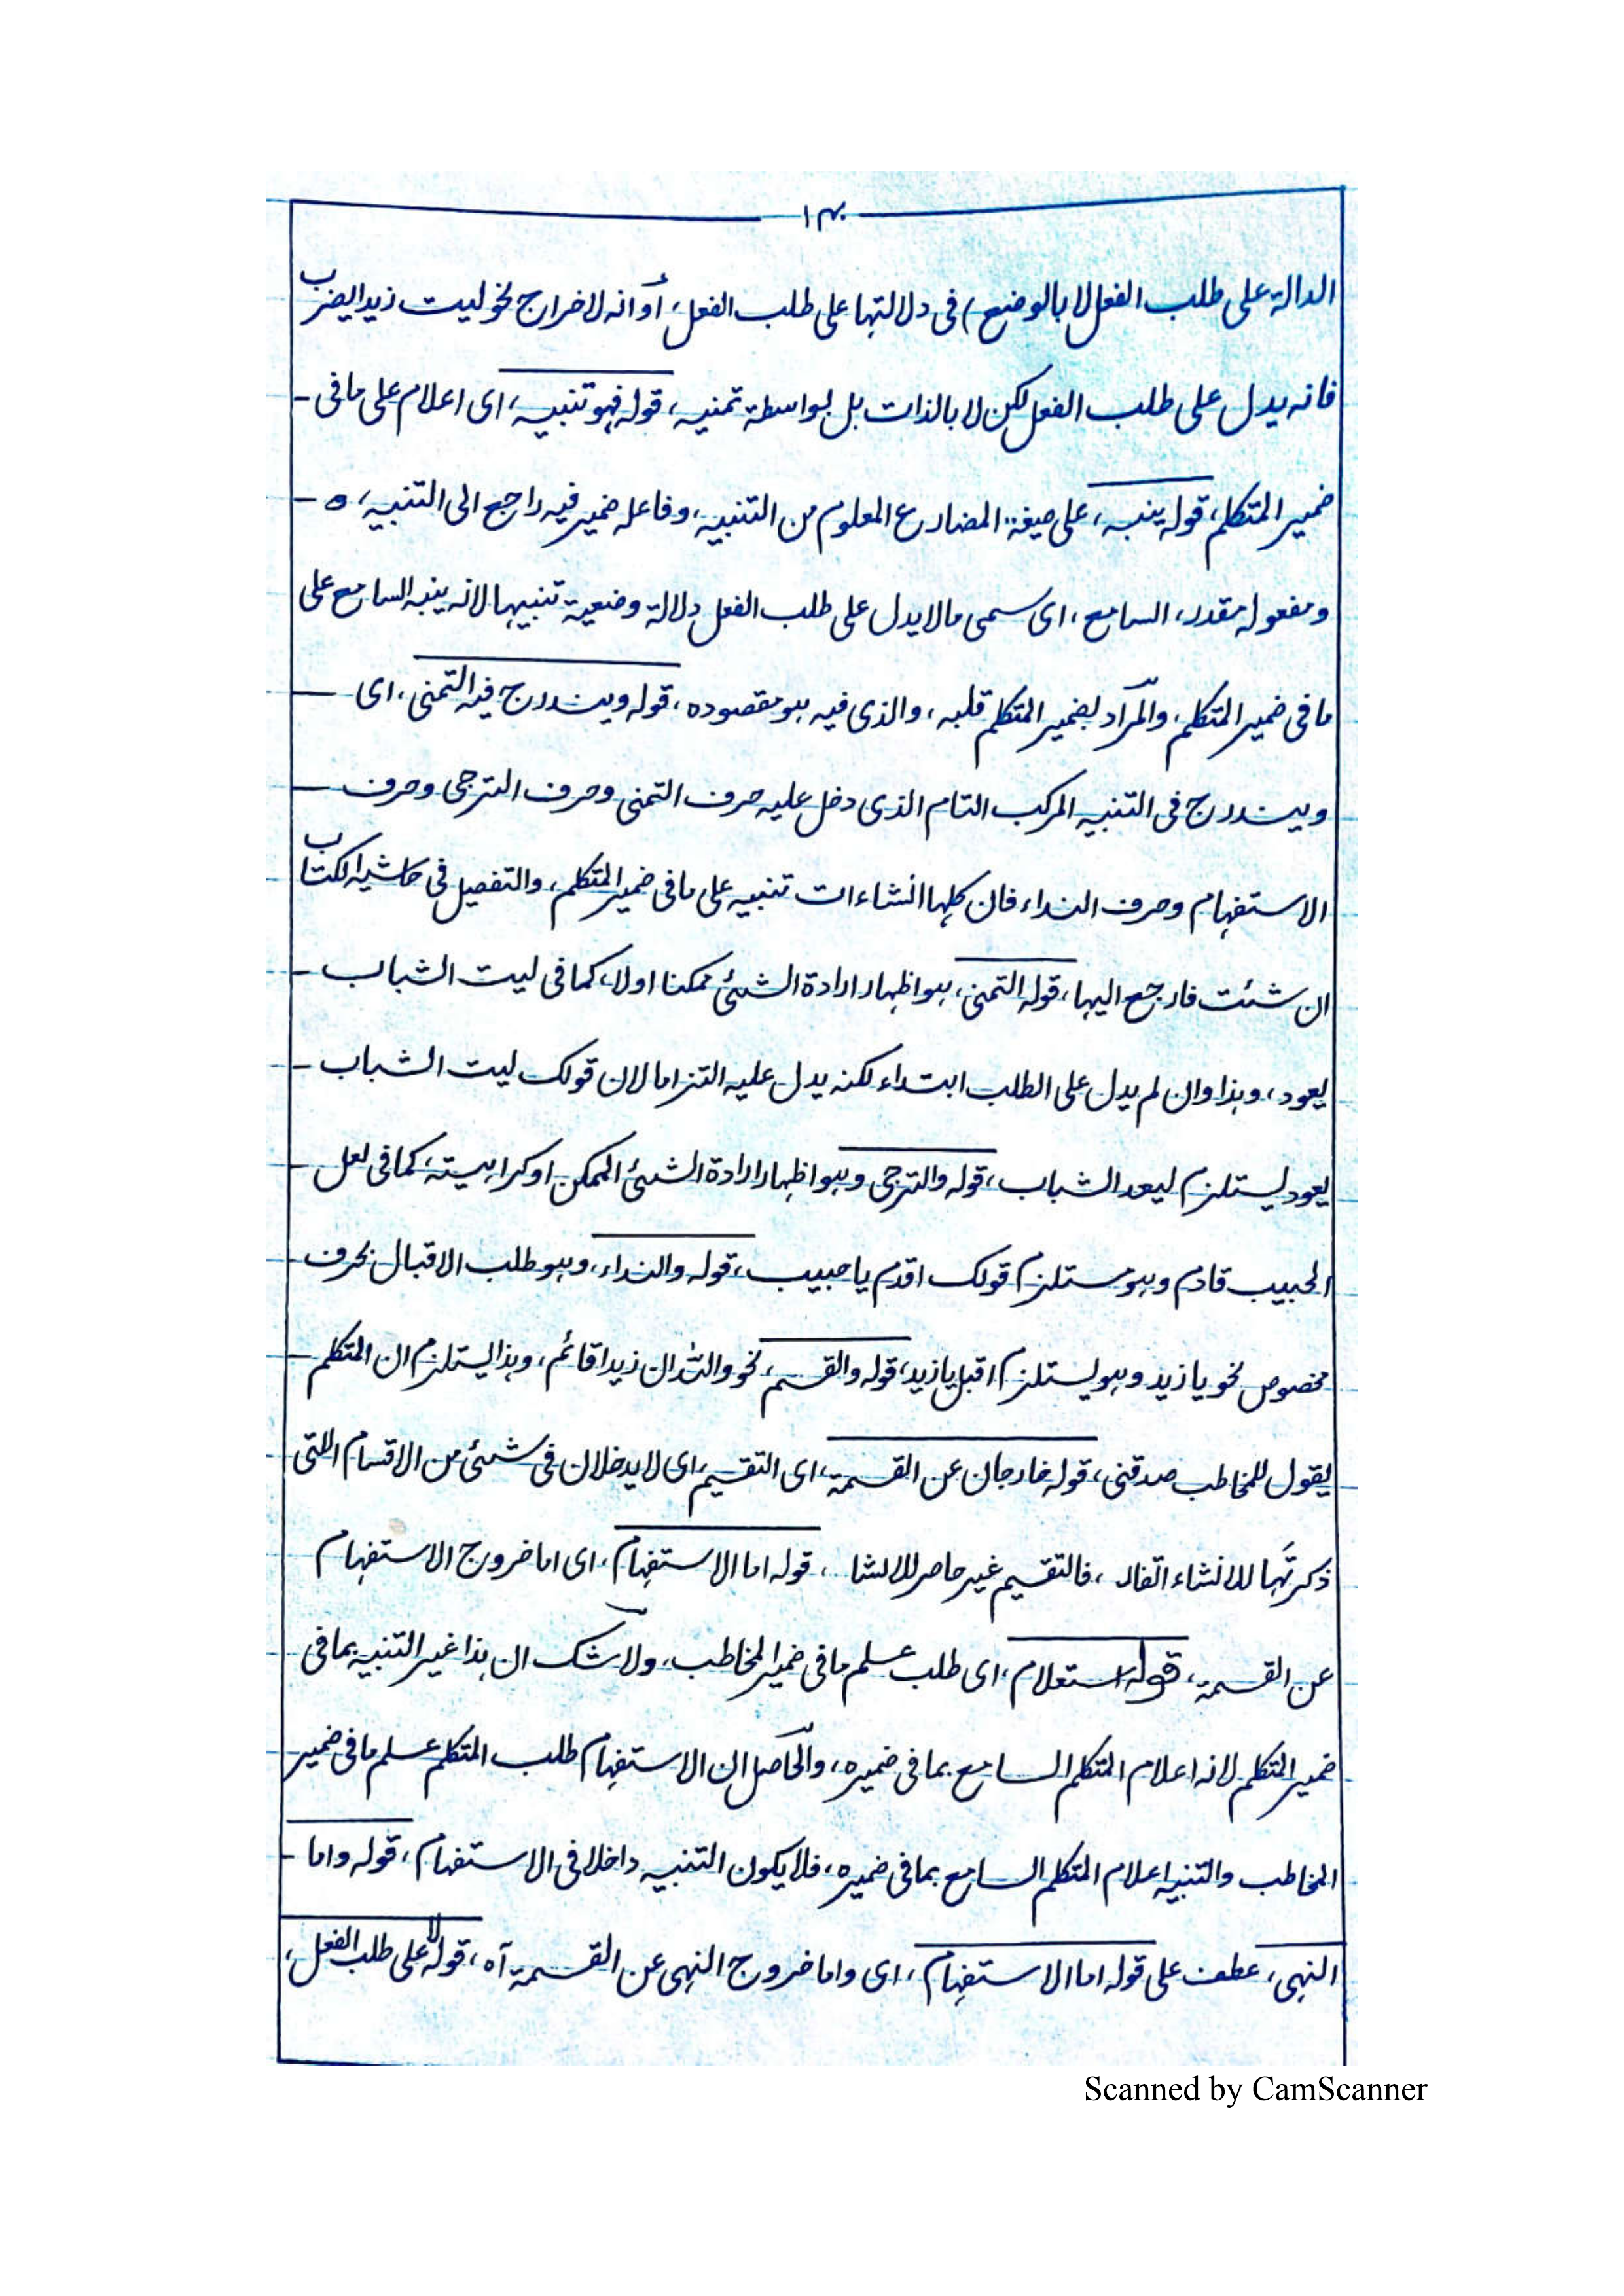 ١٣٠
الدالة على طلب الفعل لا بالوضع) فى دلالتها على طلب الفعل، أو انه لاخراج نحو ليت زيدا يضرب
فانه يدل على طلب الفعل لكن لا بالذات بل بواسطة تمنيه، قوله فهو تنبيه، اى اعلام على ما فى -
ضمير المتكلم، قوله ينبه، على صيغة المضارع المعلوم من التنبيه، وفاعله ضمير فيه راجع الى التنبيه، ه -
ومفعوله مقدر، السامع، اى سمى ما لا يدل على طلب الفعل دلالة وضعية تنبيها لانه ينبه السامع على
ما فى ضمير المتكلم، والمراد بضمير المتكلم قلبه، والذى فيه هو مقصوده، قوله ويندرج فيه التمنى، اى -
ويندرج فى التنبيه المركب التام الذى دخل عليه حرف التمنى وحرف الترجى وحرف -
الاستفهام وحرف النداء فان كلها انشاءات تنبيه على ما فى ضمير المتكلم، والتفصيل فى حاشية الكتاب
ان شئت فارجع اليها، قوله التمنى، هو اظهار ارادة الشئ ممكنا اولا، كما فى ليت الشباب -
يعود، وهذا وان لم يدل على الطلب ابتداء لكنه يدل عليه التزاما لان قولك ليت الشباب -
يعود يستلزم ليعد الشباب، قوله والترجى وهو اظهار ارادة الشئ الممكن او كراهيته، كما فى لعل -
الحبيب قادم وهو مستلزم قولك اقدم يا حبيب، قوله والنداء، وهو طلب الاقبال بحرف -
مخصوص نحو يا زيد وهو يستلزم اقبل يا زيد، قوله والقسم، نحو والله ان زيدا قائم، وهذا يستلزم ان المتكلم -
يقول للمخاطب صدقنى، قوله خارجان عن القسمة، اى التقسيم، اى لا يدخلان فى شئ من الاقسام التى
ذكرتها للانشاء، فالتقسيم غير حاصر للانشا، قوله اما الاستفهام، اى اما خروج الاستفهام
عن القسمة، قوله استعلام، اى طلب علم ما فى ضمير المخاطب، ولا شك ان هذا غير التنبيه بما فى
ضمير المتكلم لانه اعلام المتكلم السامع بما فى ضميره، والحاصل ان الاستفهام طلب المتكلم علم ما فى ضمير
المخاطب والتنبيه اعلام المتكلم السامع بما فى ضميره، فلا يكون التنبيه داخلا فى الاستفهام، قوله واما -
النهى، عطف على قوله اما الاستفهام، اى واما خروج النهى عن القسمة آه، قوله لا على طلب الفعل،
Scanned by CamScanner